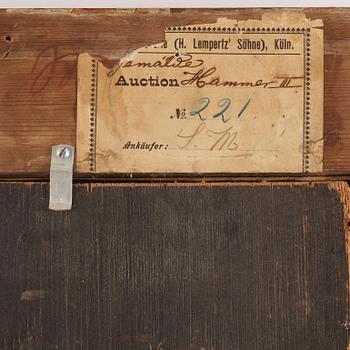 (H. Lempertz' Söhne), Köln.
Gemälde
Auction Hammer III
No 221
Ankäufer: S. M